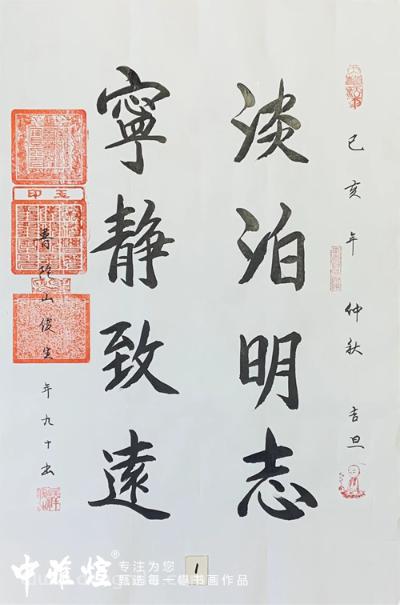 己亥年仲秋 吉旦
淡泊明志
寧靜致遠
普陀山俊生 年九十书
玉印
1
中雅煊®
专注为您
甄选每一幅书画作品